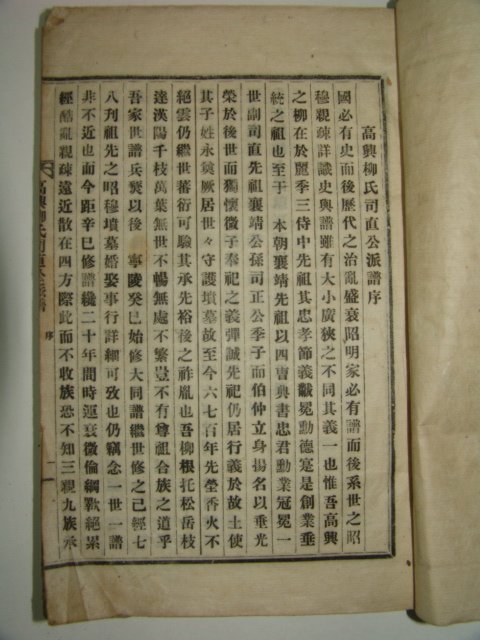 高興柳氏司直公派譜序
國必有史而後歷代之治亂盛衰昭明家必有譜而後系世之昭
穆親疎詳識史與譜雖有大小廣狹之不同其義一也惟吾高興
之柳在於麗季三侍中先祖其忠孝節義黻冕勳德寔是創業垂
統之祖也至于 本朝襄靖先祖以四曹典書忠君勳業冠冕一
世副司直先祖襄靖公孫司正公季子而伯仲立身揚名以垂光
榮於後世而獨懷微子奉祀之義彈誠先祀仍居行義於故土使
其子姓永奠厥居世々守護墳墓故至今六七百年先塋香火不
絕雲仍繼世蕃衍可驗其承先裕後之祚胤也吾柳根托松岳枝
達漢陽千枝萬葉無世不暢無處不繁豈不有尊祖合族之道乎
吾家世譜兵燹以後 寧陵癸巳始修大同譜繼世修之已經七
八刋祖先之昭穆墳墓婚娶事行詳細可攷也仍竊念一世一譜
非不近也而今距辛巳修譜纔二十年間時運衰微倫綱斁絕累
經酷亂親疎遠近散在四方際此而不收族恐不知三親九族承
高興柳氏司直公派譜 序 一